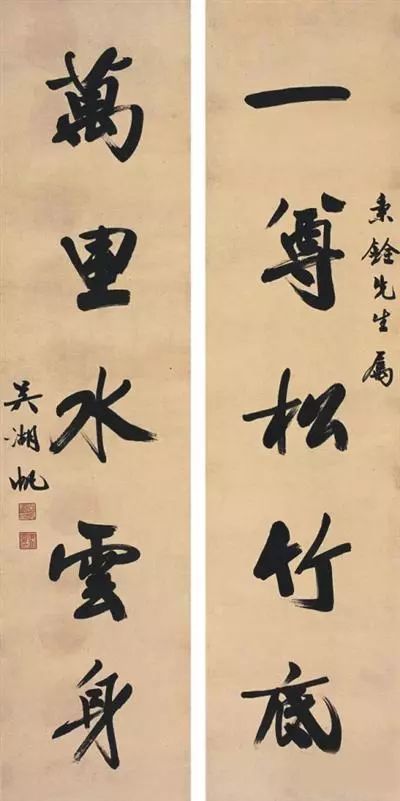 秉銓先生屬
一尊松竹底
萬里水雲身
吳湖帆